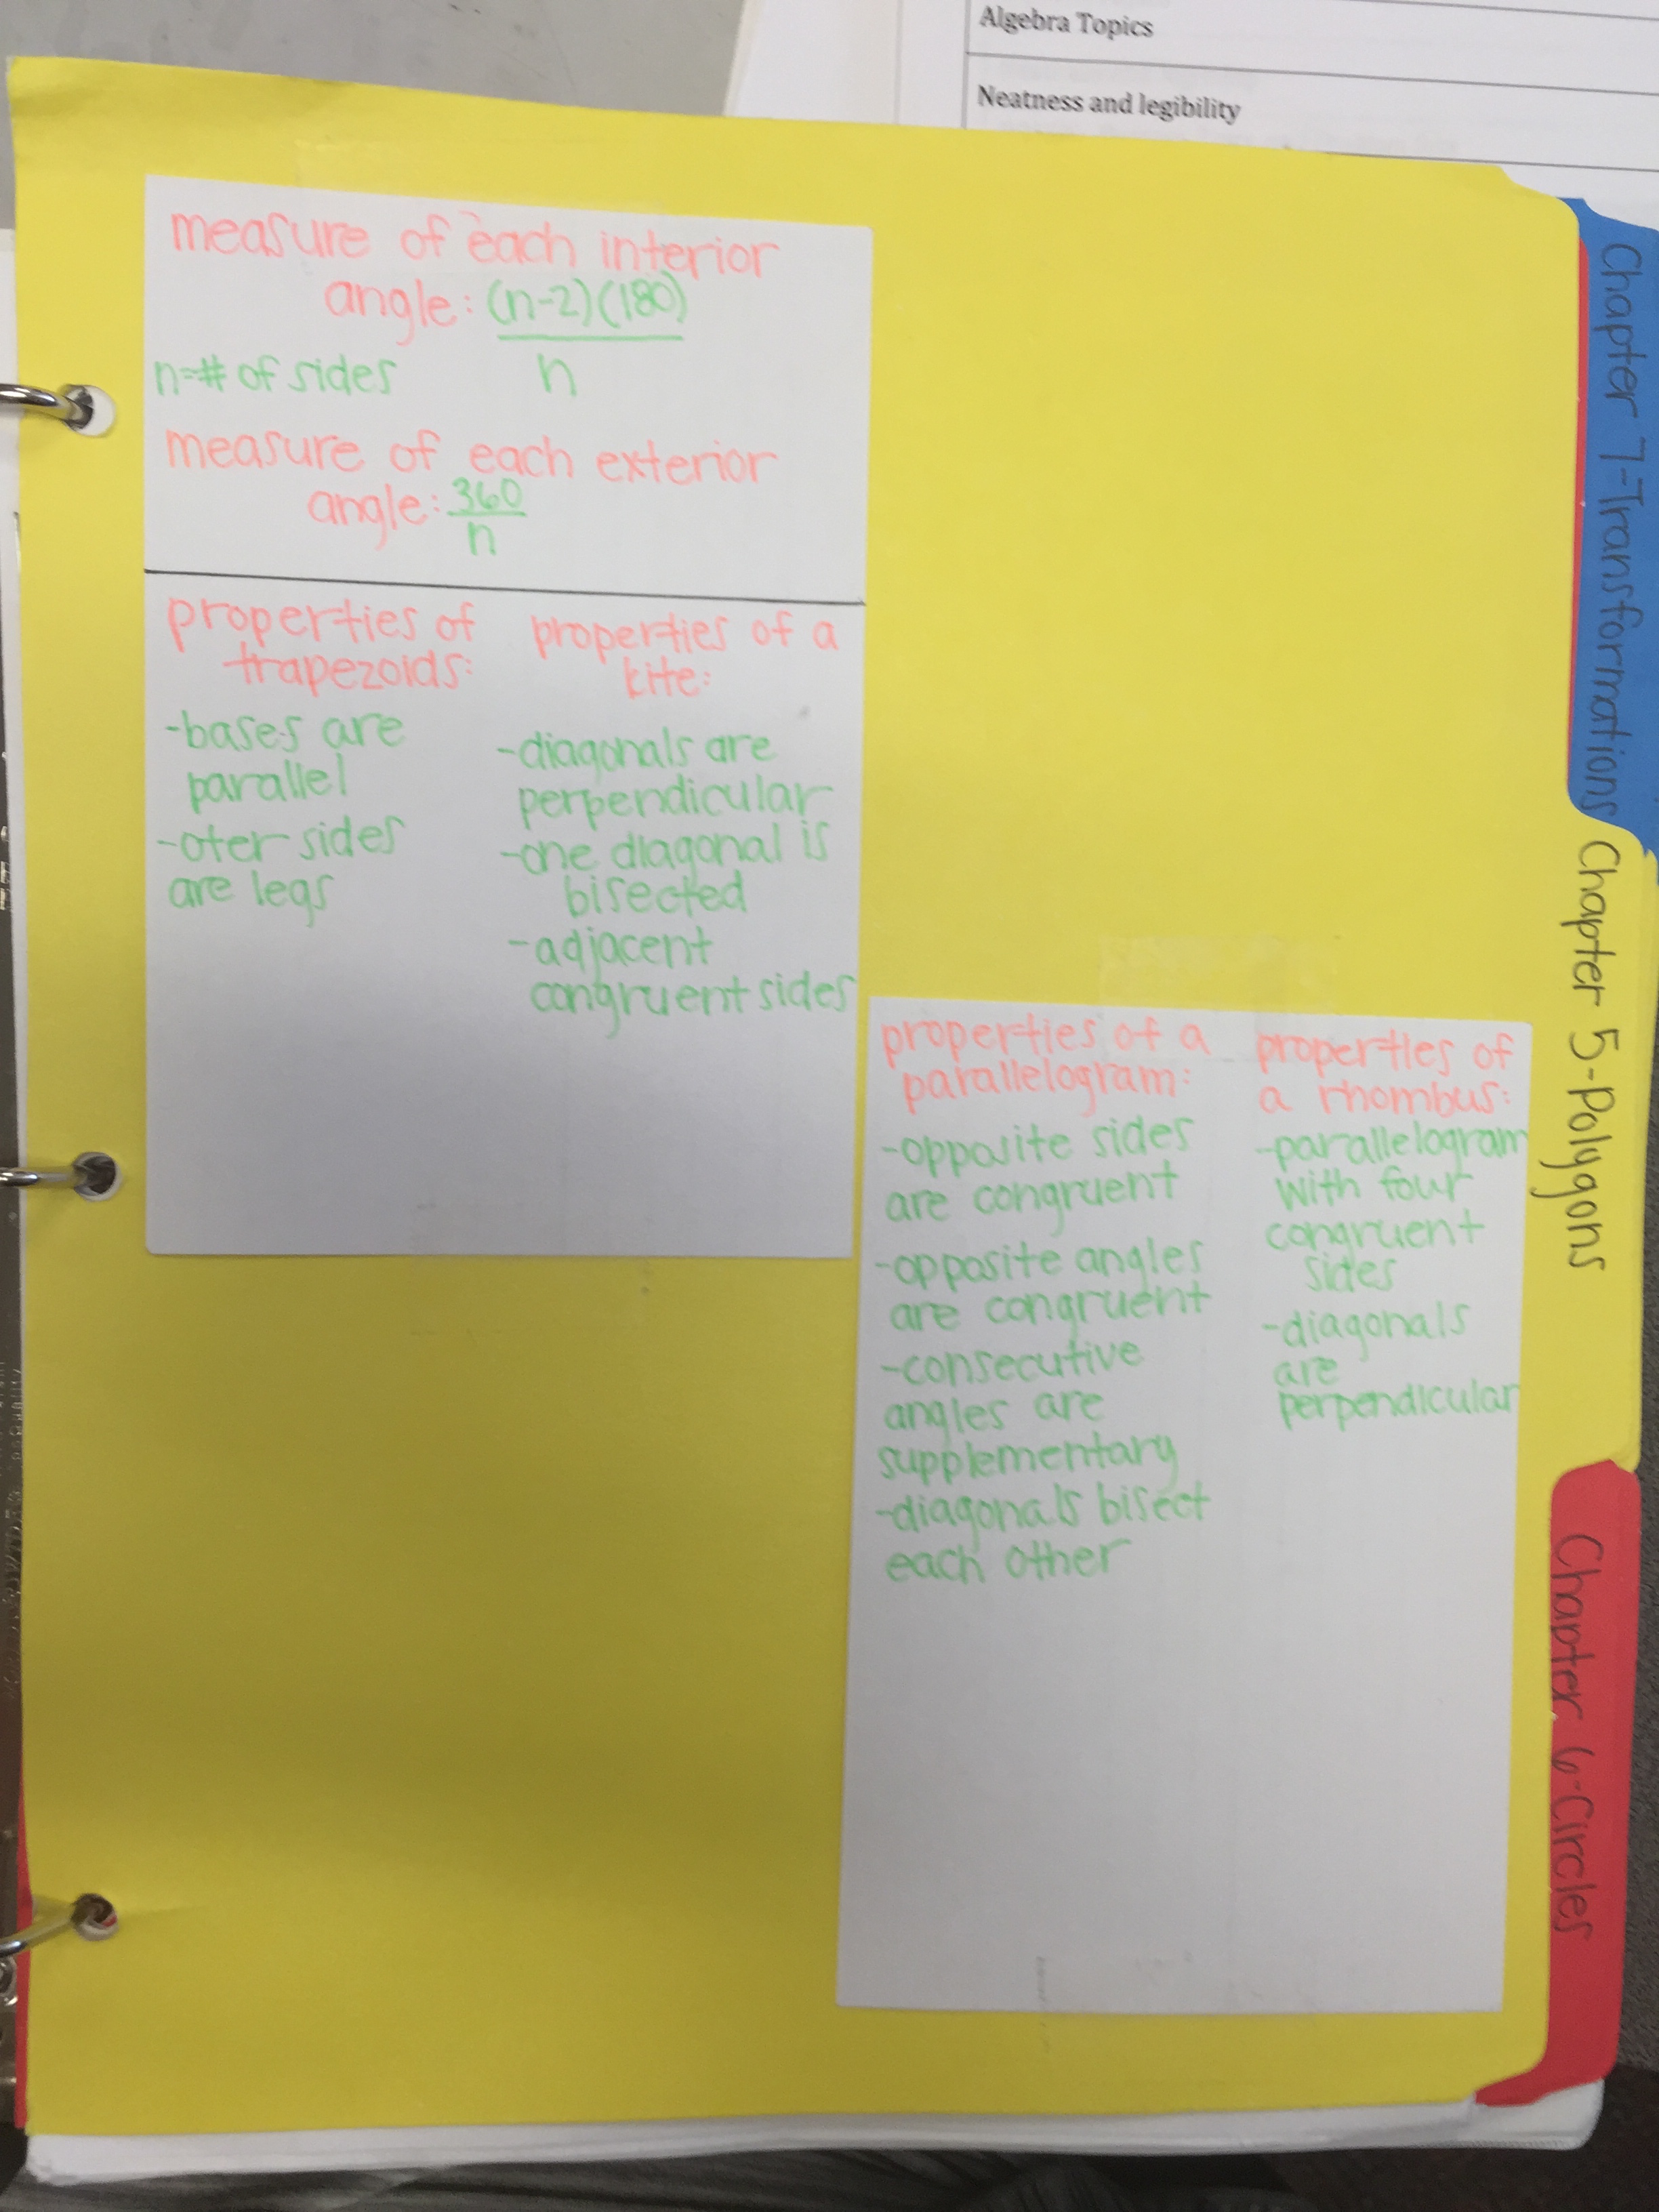 Algebra Topics
Neatness and legibility
measure of each interior
angle: (n-2)(180)
n
n=# of sides
measure of each exterior
angle: 360
n
properties of
trapezoids:
-bases are
parallel
-oter sides
are legs
properties of a
kite:
-diagonals are
perpendicular
-one diagonal is
bisected
-adjacent
congruent sides
properties of a
parallelogram:
-opposite sides
are congruent
-opposite angles
are congruent
-consecutive
angles are
supplementary
-diagonals bisect
each other
properties of
a rhombus:
-parallelogram
with four
congruent
sides
-diagonals
are
perpendicular
Chapter 7-Transformations
Chapter 5-Polygons
Chapter 6-Circles